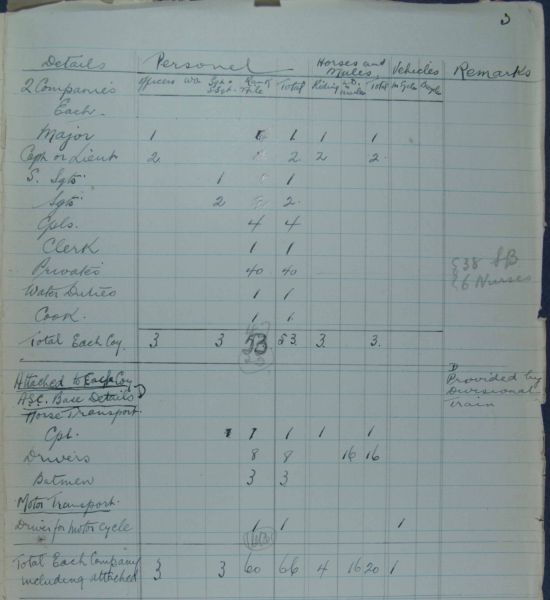 3
Details Personel Horses and Mules Vehicles Remarks
2 Companies Officers WO Sgt & S Sgt Rank & File Total Riding Total
Each
Major 1 1 1 1
Capt or Lieut 2 2 2 2
S. Sgts 1 1
Sgts 2 2
Cpls. 4 4
Clerk 1 1
Privates 40 40 38 SB
Water Duties 1 1 6 Nurses
Cook. 1 1
Total Each Coy. 3 3 53 53. 3. 3.
Attached to Each Coy D Provided by
A.S.C. Base Details D Divisional
Horse Transport. Train
Cpl. 1 1 1 1
Drivers 8 8 16 16
Batmen 3 3
Motor Transport.
Driver for motor cycle 1 1 1
Total Each Company
including attached 3 3 60 66 4 16 20 1